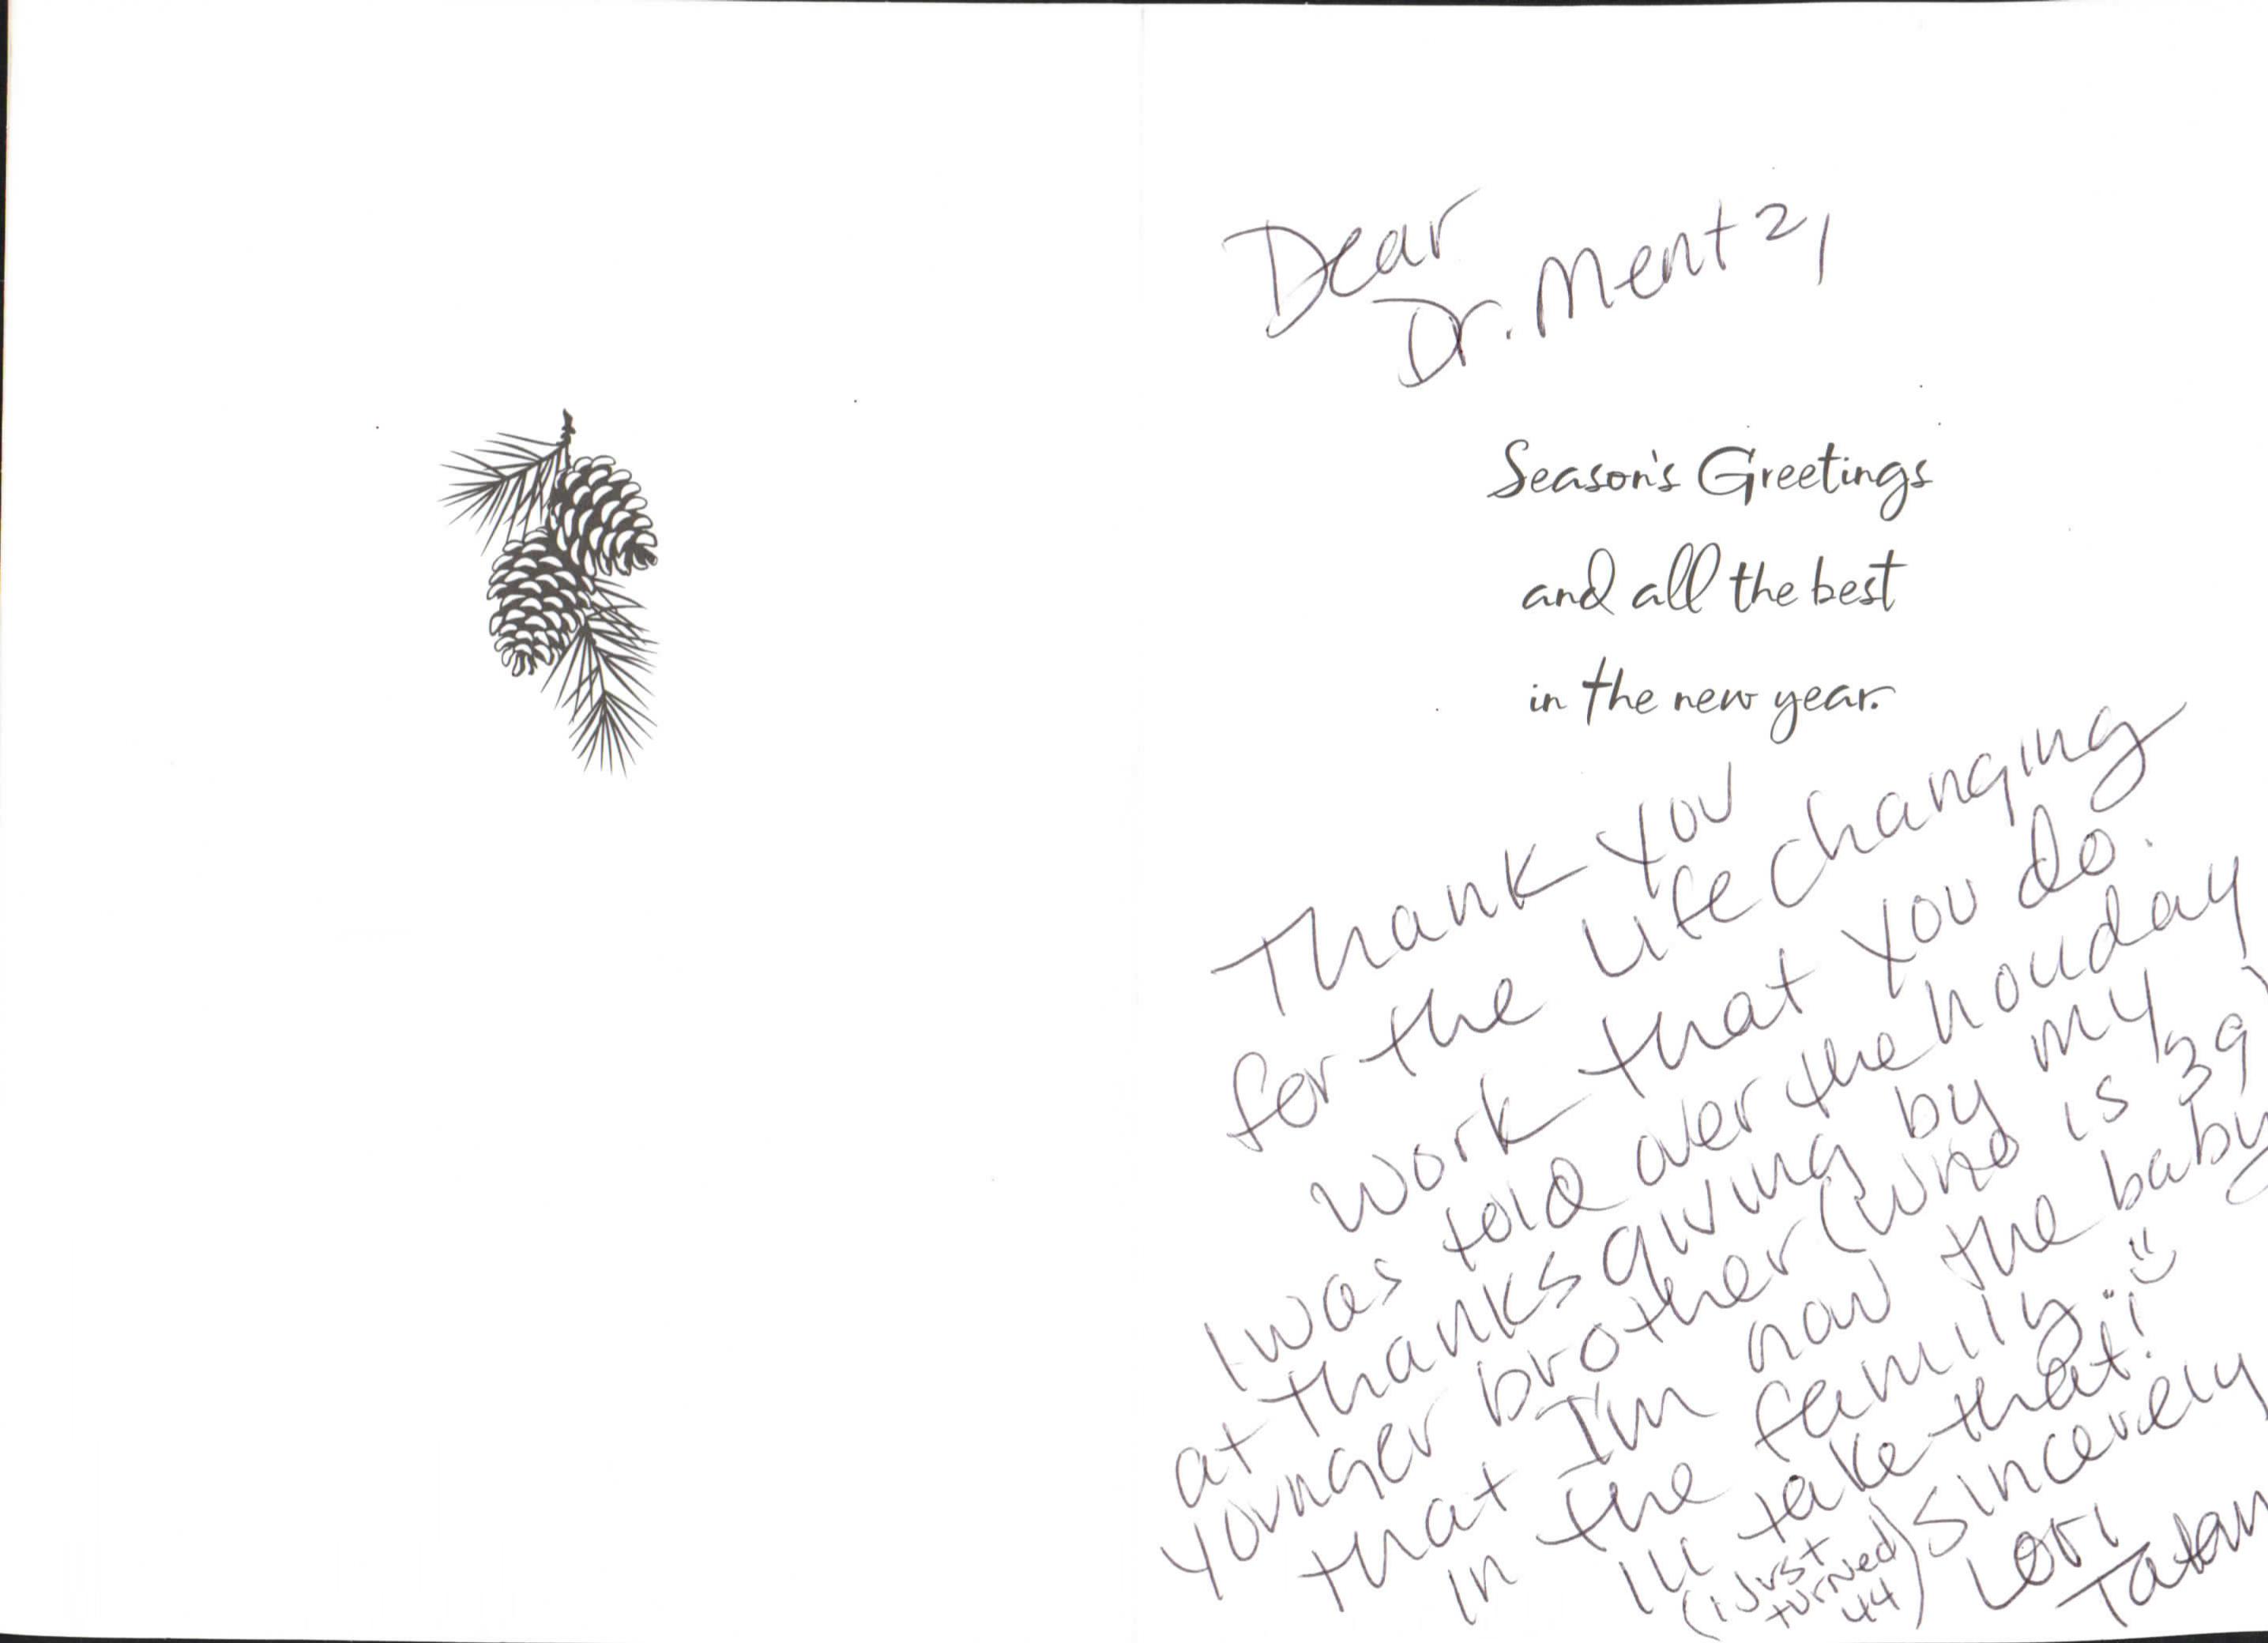 Dear
Dr. Mentz,
Season's Greetings
and all the best
in the new year.
Thank you
for the life changing
work that you do.
I was told over the holiday
at thanksgiving by my
younger brother (who is 39)
that I'm now the baby
in the family.. :)
I'll take that!
(I just
turned
44)
Sincerely
Lori